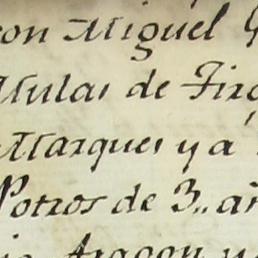 con Miguel
Mulas de Tiro
Marques y a
Potros de 3,, añ
Aragon y